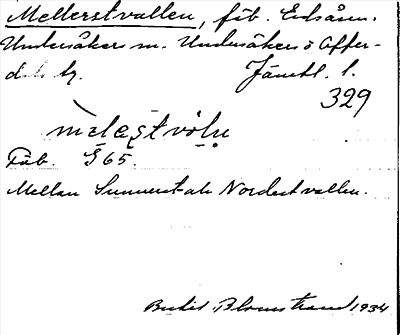 Mellerstvallen, fäb. Edsåsen.
Undersåker sn. Undersåkers o Offer-
dals tg. Jämtl. l.
329
mèlestvòln
Fäb. G65.
Mellan Sunnerst- ate Nordestvallen.
Berit Blomstrand 1934